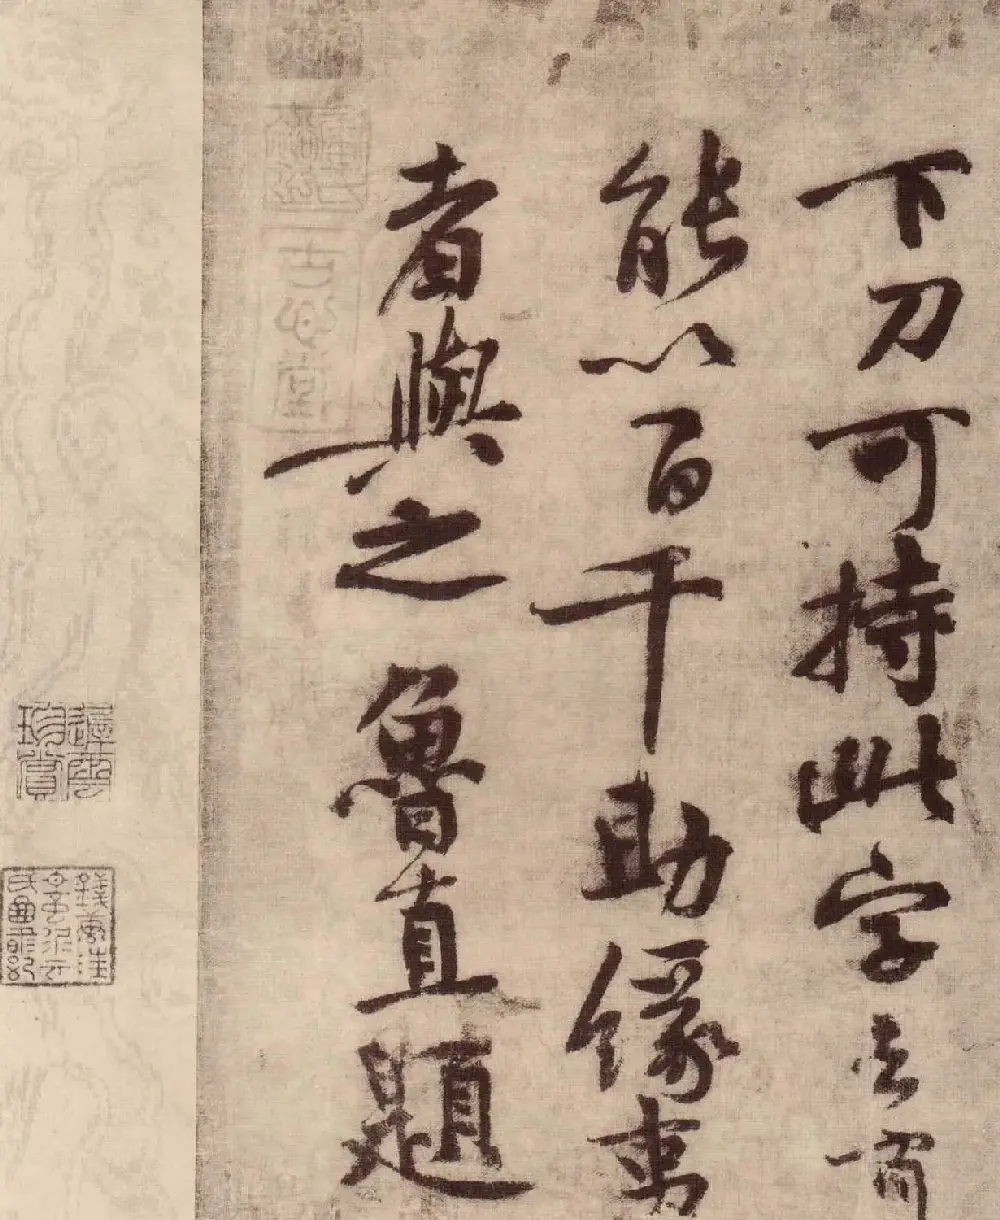 下刀可持此字去
能以百千助緣事
者與之魯直題
珍賞